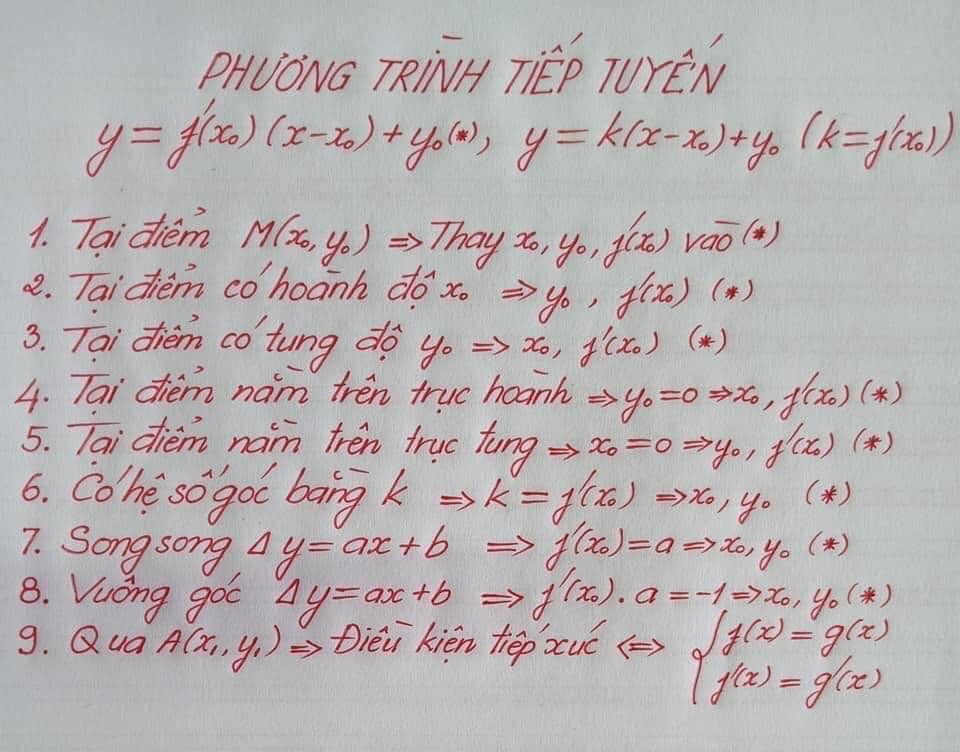 PHƯƠNG TRÌNH TIẾP TUYẾN
y = f'(x₀) (x-x₀) + y₀ (*), y = k(x-x₀) + y₀ (k=f'(x₀))
1. Tại điểm M(x₀, y₀) => Thay x₀, y₀, f'(x₀) vào (*)
2. Tại điểm có hoành độ x₀ => y₀ , f'(x₀) (*)
3. Tại điểm có tung độ y₀ => x₀, f'(x₀) (*)
4. Tại điểm nằm trên trục hoành => y₀=0 => x₀, f'(x₀) (*)
5. Tại điểm nằm trên trục tung => x₀=0 => y₀, f'(x₀) (*)
6. Có hệ số góc bằng k => k = f'(x₀) => x₀, y₀ (*)
7. Song song Δ y=ax+b => f'(x₀)=a => x₀, y₀ (*)
8. Vuông góc Δ y=ax+b => f'(x₀).a = -1 => x₀, y₀ (*)
9. Qua A(x₁, y₁) => Điều kiện tiếp xúc <=> { f(x) = g(x)
f'(x) = g'(x)